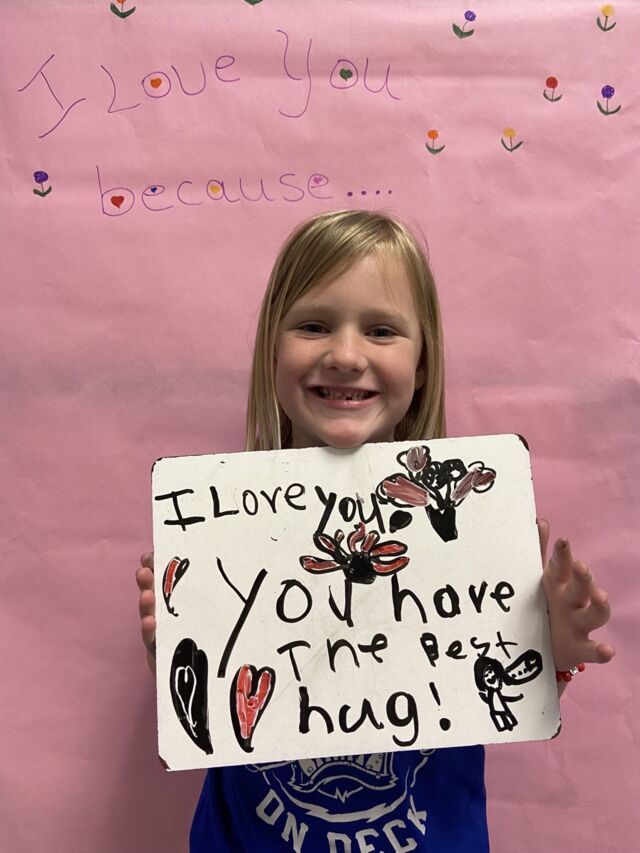 I Love You
because....
I Love you!
You have
The Best
hug!
ON DECK